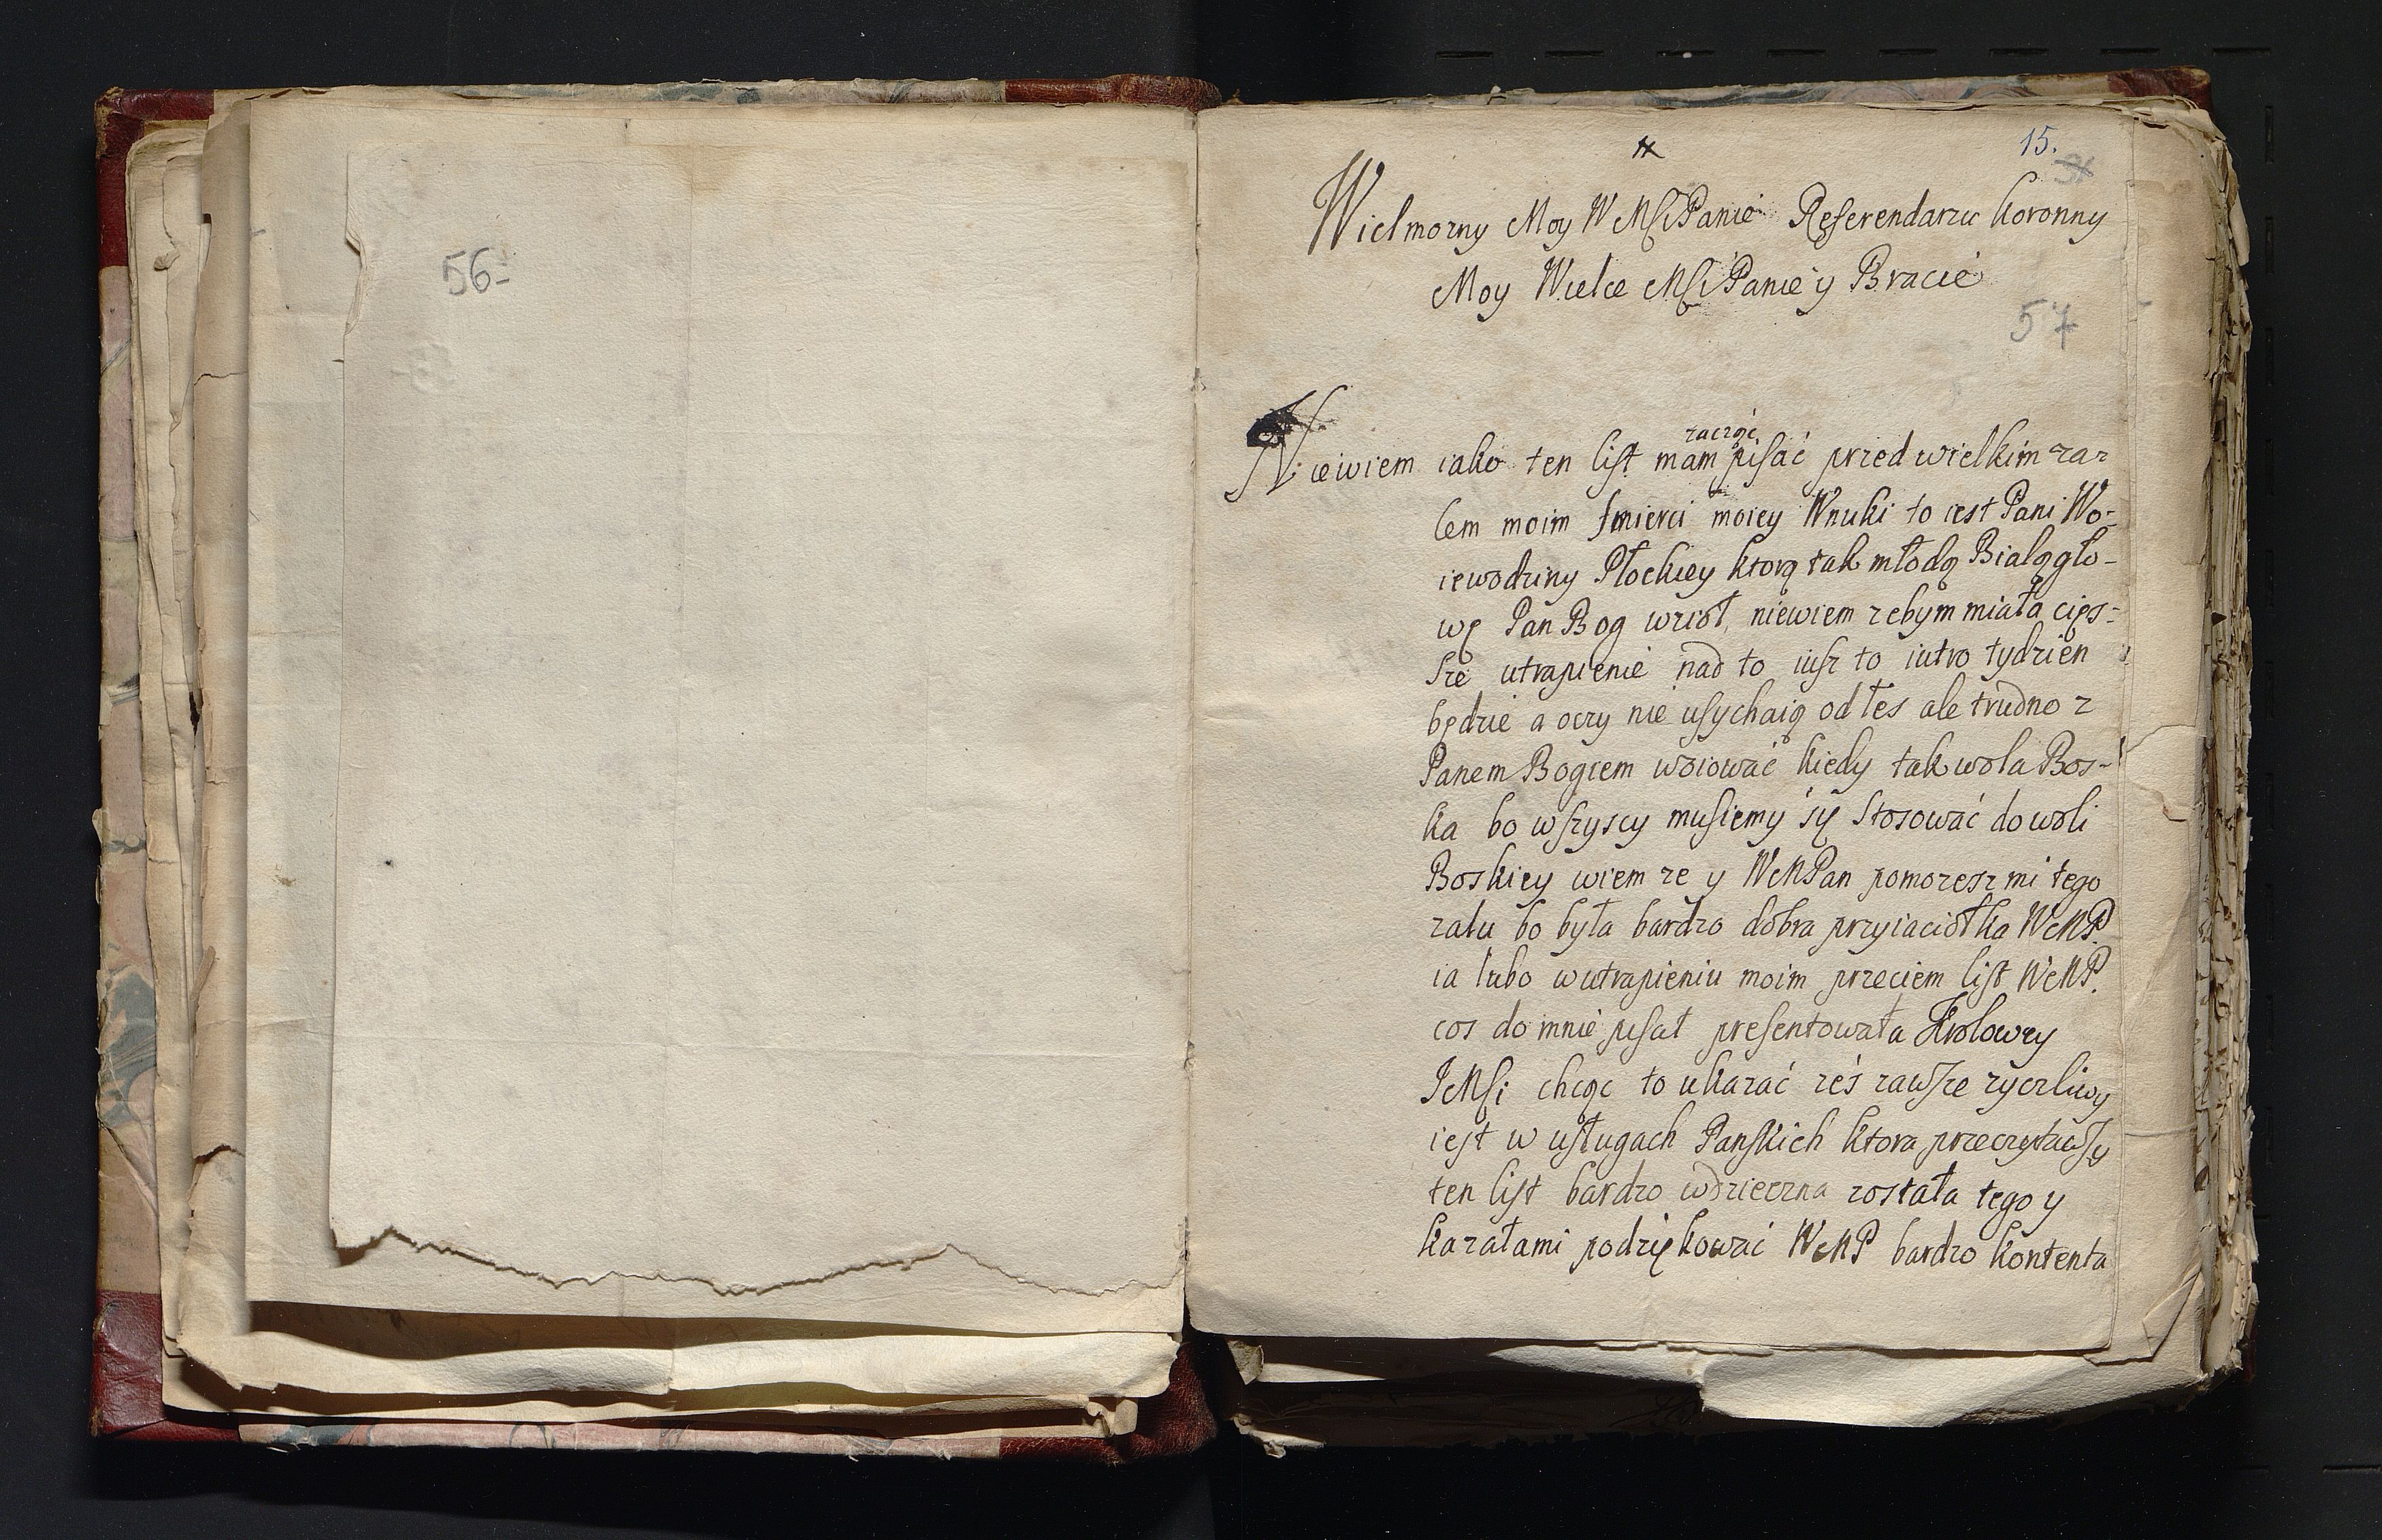 56-
15.
Wielmozny Moy WMSCPanie Referendarzu koronny
Moy Wielce MSCPanie y Bracie
57
zacząć
Niewiem iako ten list mam pisać przed wielkim za-
lem moim smierci moiey Wnuki to iest Pani Wo-
iewodziny Płockiey ktorą tak młodą Białągło-
wę Pan Bog wziął, niewiem zebym miała cięs-
sze utrapienie nad to iusz to iutro tydzien
będzie a oczy nie usychaią od łes ale trudno z
Panem Bogiem woiować kiedy tak wola Bos-
ka bo wszyscy musiemy się stosować do woli
Boskiey wiem ze y WMPan pomozesz mi tego
zalu bo była bardzo dobra przyiaciołka WMP.
ia lubo w utrapieniu moim przeciem list WMP.
cos do mnie pisał presentowała Krolowey
JeMsci chcąc to ukazać ześ zawsze zyczliwy
iest w usługach Panskich ktora przeczytawszy
ten list bardzo wdzieczna została tego y
kazałami podziękować WMP bardzo kontenta